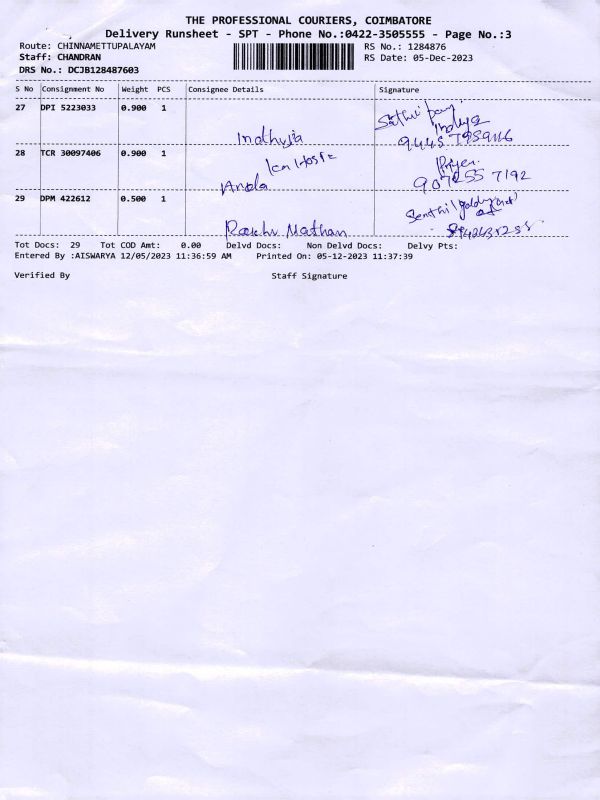 THE PROFESSIONAL COURIERS, COIMBATORE
Delivery Runsheet - SPT - Phone No.:0422-3505555 - Page No.:3
Route: CHINNAMETTUPALAYAM RS No.: 1284876
Staff: CHANDRAN RS Date: 05-Dec-2023
DRS No.: DCJB128487603
S No Consignment No Weight PCS Consignee Details Signature
27 DPI 5223033 0.900 1
Indhuja
28 TCR 30097406 0.900 1
907255 7192
29 DPM 422612 0.500 1
Mathan
Tot Docs: 29 Tot COD Amt: 0.00 Delvd Docs: Non Delvd Docs: Delvy Pts:
Entered By :AISWARYA 12/05/2023 11:36:59 AM Printed On: 05-12-2023 11:37:39
Verified By Staff Signature